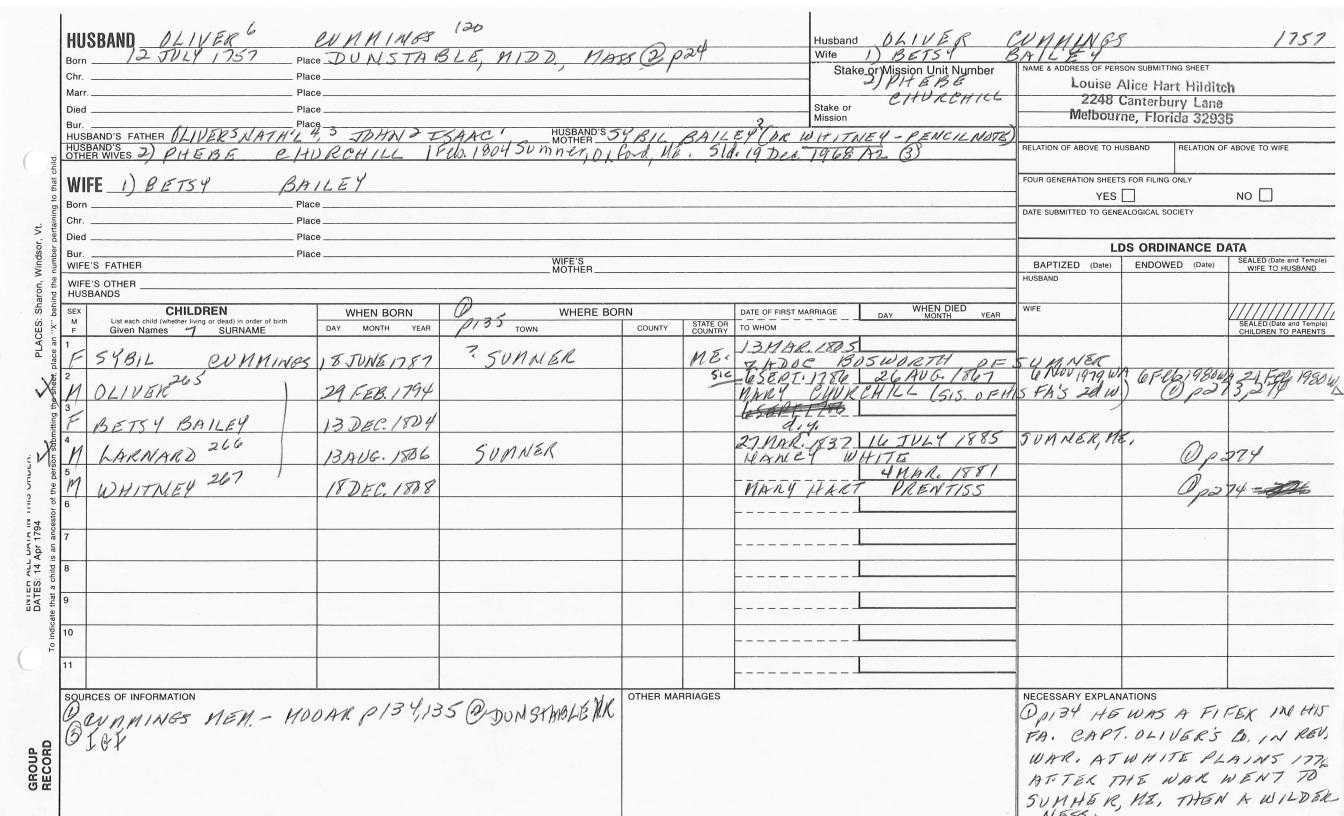 HUSBAND OLIVER 6 CUMMINGS 120
Born 12 JULY 1757 Place DUNSTABLE, MIDD, MASS ② p24
Chr. Place
Marr. Place
Died Place
Bur. Place
HUSBAND'S FATHER OLIVER5 NATH'L 4, 3 JOHN2 ISAAC1 HUSBAND'S MOTHER SYBIL BAILEY? (OR WHITNEY - PENCIL NOTE)
HUSBAND'S OTHER WIVES 2) PHEBE CHURCHILL 1 Feb. 1804 Sumner, Oxford, Me. Sld. 19 Dec 1968 AZ ③
Husband OLIVER CUMMINGS 1757
Wife 1) BETSY BAILEY
Stake or Mission Unit Number
2) PHEBE CHURCHILL
Stake or Mission
NAME & ADDRESS OF PERSON SUBMITTING SHEET
Louise Alice Hart Hilditch
2248 Canterbury Lane
Melbourne, Florida 32935
RELATION OF ABOVE TO HUSBAND RELATION OF ABOVE TO WIFE
FOUR GENERATION SHEETS FOR FILING ONLY
YES NO
DATE SUBMITTED TO GENEALOGICAL SOCIETY
WIFE 1) BETSY BAILEY
Born Place
Chr. Place
Died Place
Bur. Place
WIFE'S FATHER WIFE'S MOTHER
WIFE'S OTHER HUSBANDS
LDS ORDINANCE DATA
BAPTIZED (Date) ENDOWED (Date) SEALED (Date and Temple) WIFE TO HUSBAND
HUSBAND
WIFE
SEALED (Date and Temple) CHILDREN TO PARENTS
SEX M F
CHILDREN
List each child (whether living or dead) in order of birth
Given Names 7 SURNAME
WHEN BORN
DAY MONTH YEAR
① p135
WHERE BORN
TOWN COUNTY STATE OR COUNTRY
DATE OF FIRST MARRIAGE
TO WHOM
WHEN DIED
DAY MONTH YEAR
1 F SYBIL CUMMINGS 18 JUNE 1787 ? SUMNER ME. 13 MAR. 1805
ZADOC BOSWORTH OF SUMNER
2 M OLIVER 265 29 FEB. 1794 sic 6 SEPT. 1786 26 AUG. 1867 6 NOV 1979 WA 6 Feb 1980 WA 21 Feb 1980 WA
MARY CHURCHILL (SIS. OF HIS FA'S 2d W) ① p273, 274
3 F BETSY BAILEY 13 DEC. 1804 d.y.
4 M LARNARD 266 13 AUG. 1806 SUMNER 27 MAR. 1837 16 JULY 1885 SUMNER, ME.
NANCY WHITE ① p274
5 M WHITNEY 267 18 DEC. 1808 4 MAR. 1881
MARY HART PRENTISS ① p274
6
7
8
9
10
11
SOURCES OF INFORMATION
① CUMMINGS MEM. - MOOAR p134, 135 ② DUNSTABLE VR
③ IGI
OTHER MARRIAGES
NECESSARY EXPLANATIONS
① p134 HE WAS A FIFER IN HIS
FA. CAPT. OLIVER'S CO. IN REV.
WAR. AT WHITE PLAINS 1776
AFTER THE WAR WENT TO
SUMNER, ME. THEN A WILDER-
NESS.
PLACES: Sharon, Windsor, Vt.
ENTER ALL DATA IN THIS ORDER:
DATES: 14 Apr 1794
To indicate that a child is an ancestor of the person submitting the sheet, place an "X" behind the number pertaining to that child.
GROUP RECORD